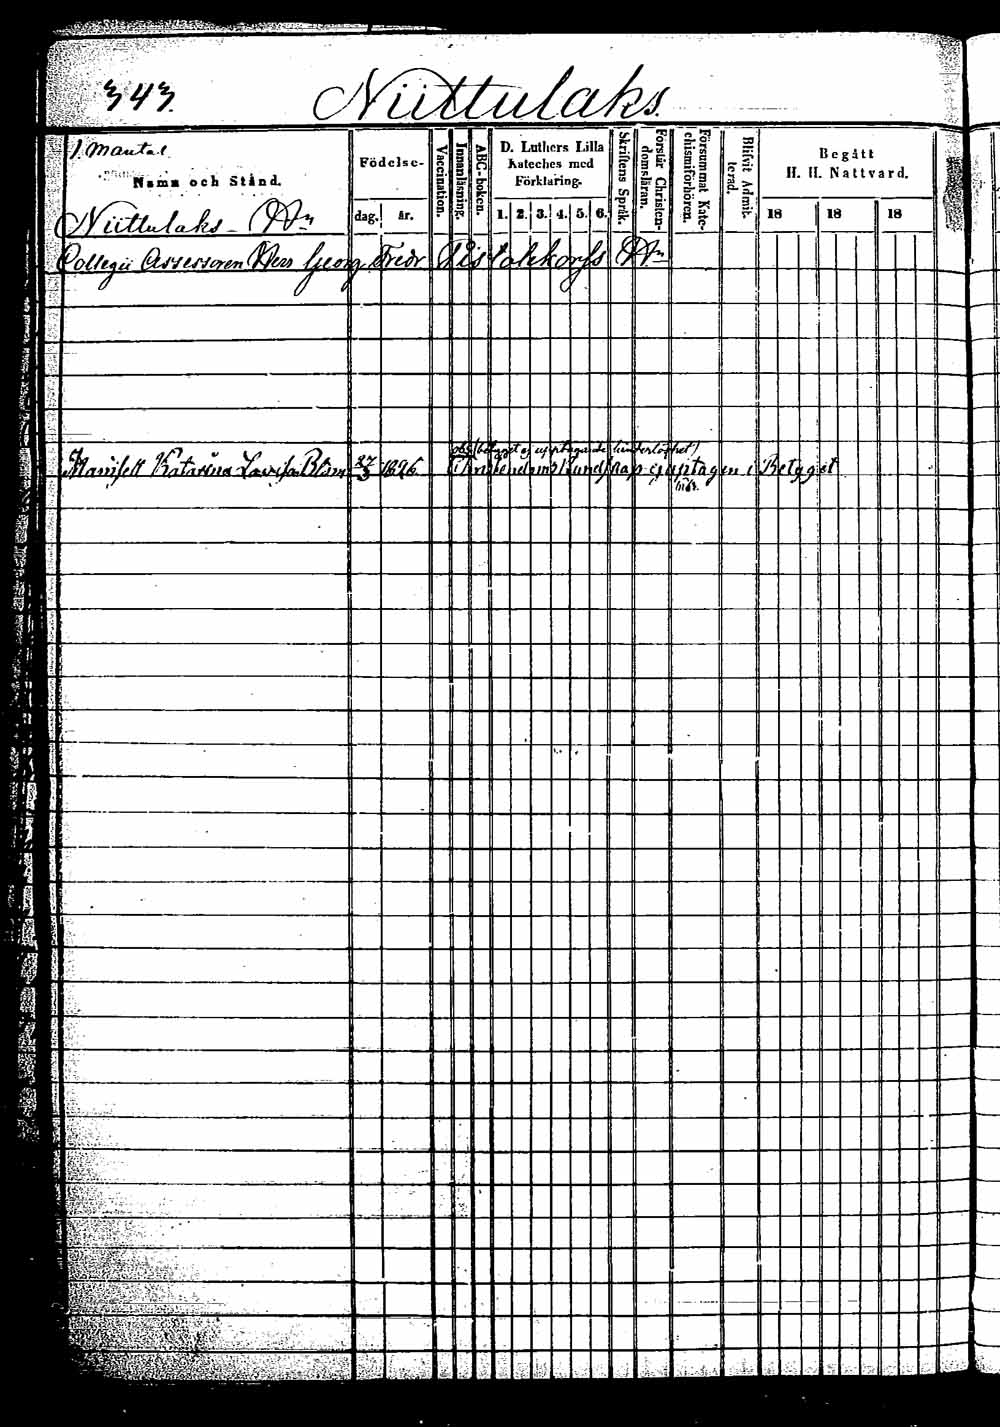 343.
Niittulaks.
1. Mantal
Namn och Stånd.
Födelse-
dag. år.
Vaccination.
Innanläsning.
ABC-boken.
D. Luthers Lilla
Kateches med
Förklaring.
1. 2. 3. 4. 5. 6.
Skriftens Språk.
Förstår Christen-
domsläran.
Försummat Kate-
chismiförhören.
Blifvit Admit-
terad.
Begått
H. H. Nattvard.
18 18 18
Niittulaks
Collegii Assessoren Georg Fredr Pistolekorfs
Mamsell Katarina Lovisa Blom 27/3 1826. Christendoms Kundskap ej uptagen i Betyget